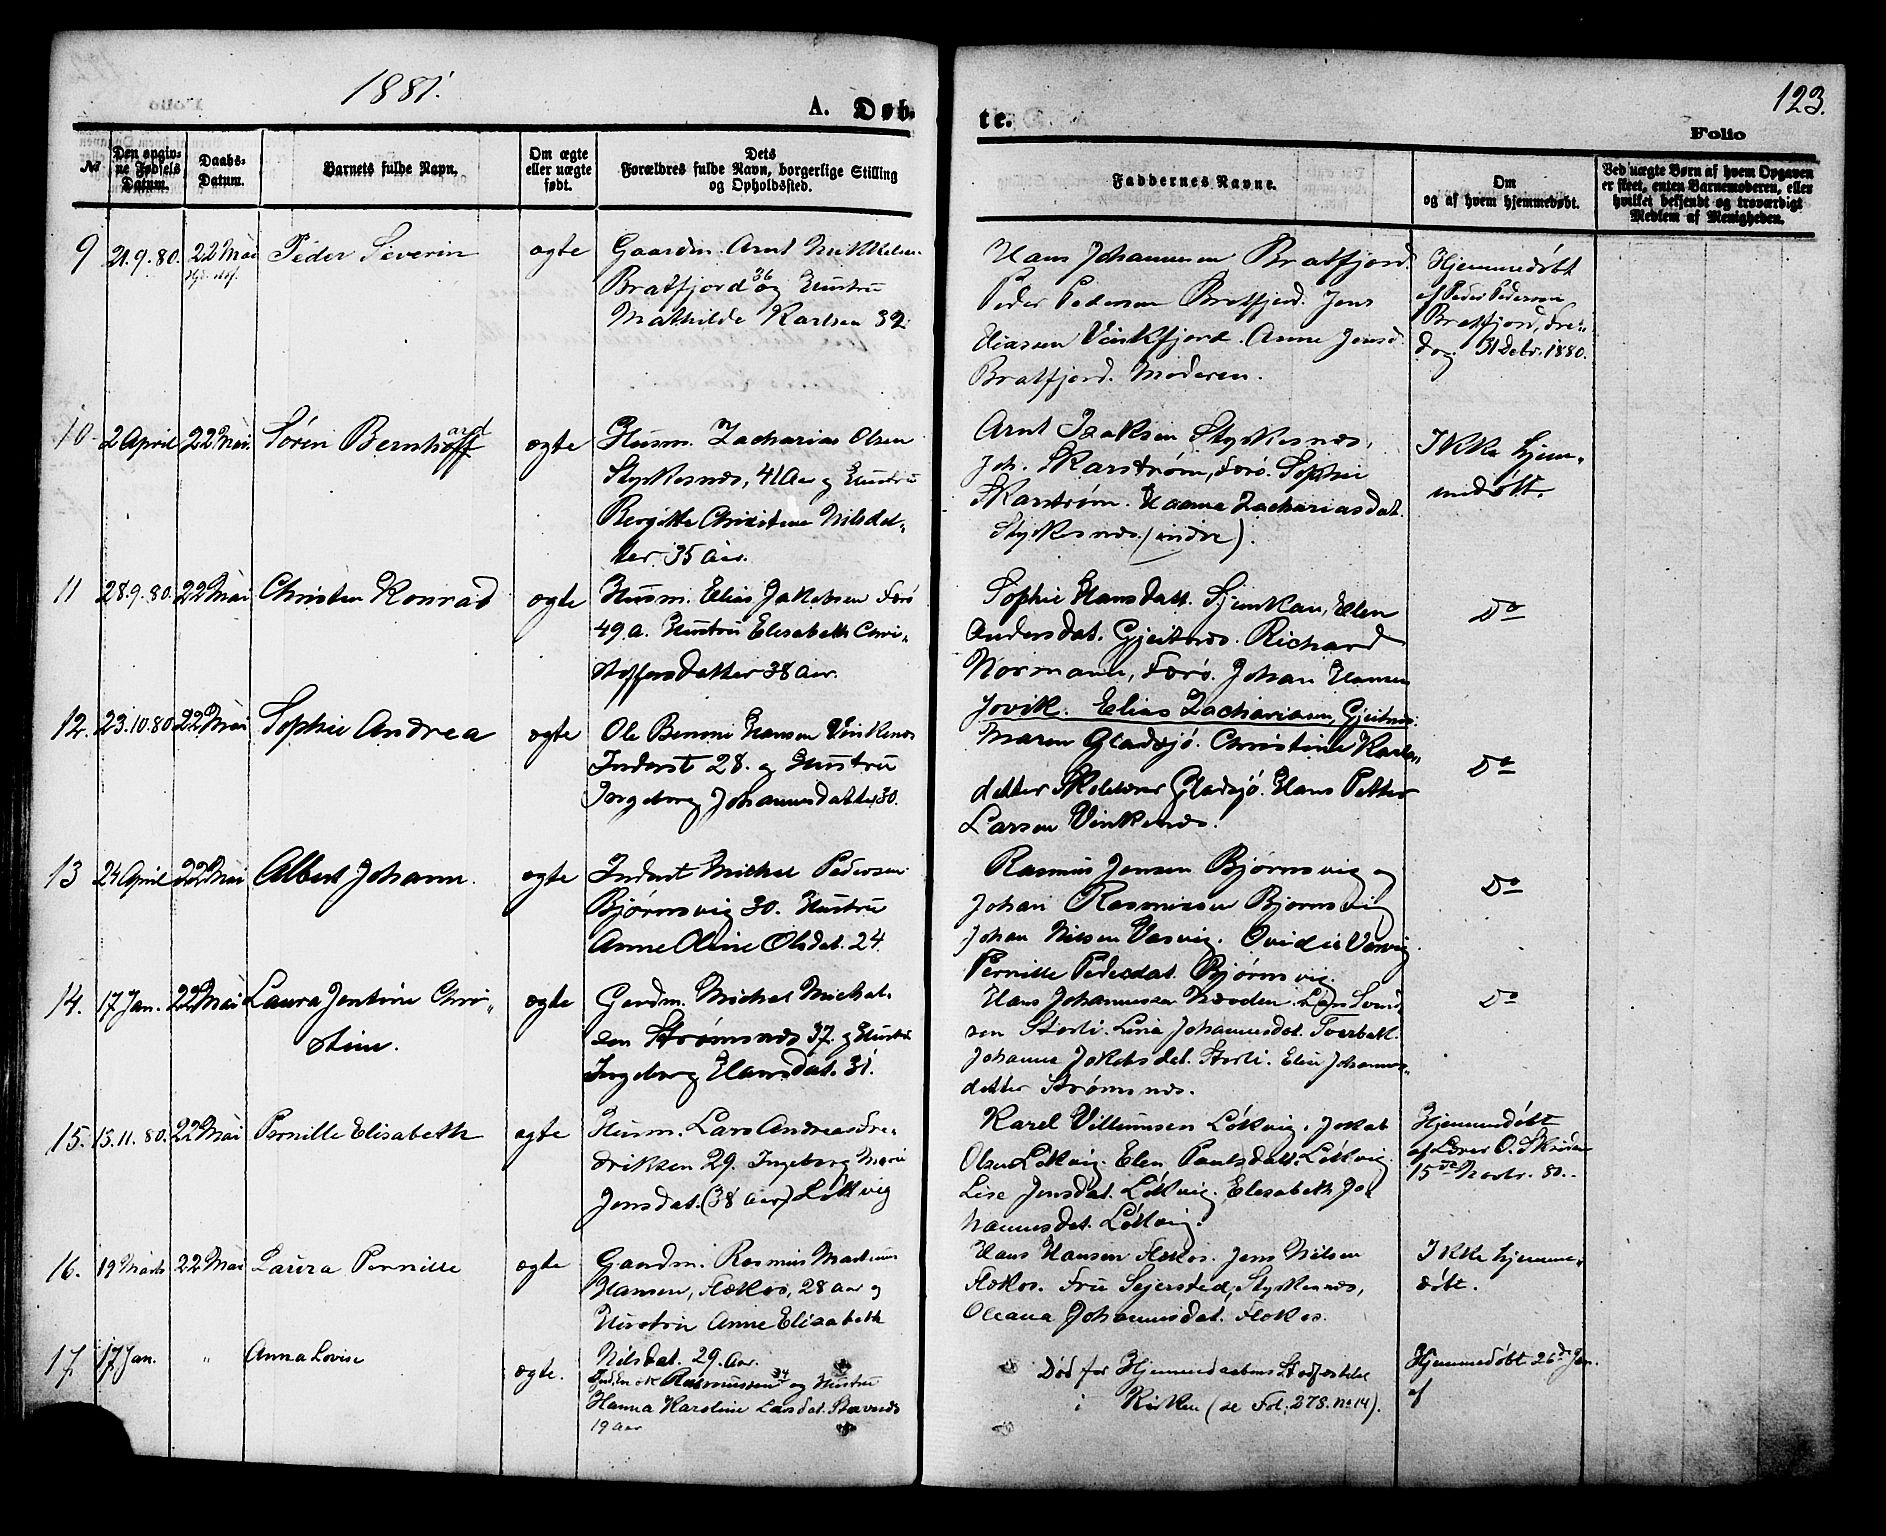 1881.
A. Døb-
te.
123.
Folio
No
Den opgiv-
ne Fødsels
Datum.
Daabs-
Datum.
Barnets fulde Navn.
Om ægte
eller uægte
født.
Dets
Forældres fulde Navn, borgerlige Stilling
og Opholdssted.
Faddernes Navne.
Om
og af hvem hjemmedøbt.
Ved uægte Børn af hvem Opgaven
er skeet, enten Barnemoderen, eller
hvilket bekjendt og troværdigt
Medlem af Menigheden.
9
21.9.80.
22 Mai
Peder Severin
ægte
Gaardm. Arnt Mikkelsen
Bratfjord 36 og Hustru
Mathilde Karlsen 32.
Hans Johannesen Bratfjord.
Peder Pedersen Bratfjord. Jens
Eliassen Vinkfjord. Anne Jensd.
Bratfjord. Moderen.
Hjemmedøbt
af Peder Pedersen
Bratfjord, Fre-
dag 31 Decbr. 1880.
10.
2 April
22 Mai.
Sören Bernhard
ægte
Husm. Zacharias Olsen
Styrkesnæs, 41 Aar og Hustru
Bergitte Christine Nilsdat-
ter 35 Aar.
Arnt Isaksen Styrkesnæs,
Joh. Skarstrøm, Forö. Sophie
Skarstrøm. Hanna Zachariasdat.
Styrkesnæs. (indre).
Ikke hjem-
medøbt.
11
28.9.80.
22 Mai
Christen Konrad
ægte
Husm. Elias Jakobsen Forö
49 a. Hustru Elisabeth Chri-
stoffersdatter 38 Aar.
Sophie Hansdatt. Sjunkan, Elen
Andersdat. Gjeitnæs. Richard
Normann, Forö. Johan Hansen
Jovik. Elias Zachariasen, Gjeitnæs.
Do
12.
23.10.80
22 Mai
Sophie Andrea
ægte
Ole Benoni Hansen Vinkenæs
Inderst 28. og Hustru
Ingeborg Johannesdatter 30.
Maren Gladsjö. Christine Karls-
datter Skolelærer Gladsjö. Hans Petter
Larsen Vinkenæs.
Do
13
24 April
22 Mai
Albert Johann.
ægte
Inderst Michel Pedersen
Bjørnsvig 30. Hustru
Anne Oline Olsdat. 24.
Rasmus Jensen Bjørnsvig og
Johan Rasmussen Bjørnsvig
Johan Nilsen Vasvig. Vasvig
Pernille Pedersdat. Bjørnsvig.
Do
14.
17 Jan.
22 Mai
Laura Jentine Chri-
stine.
ægte
Gardm. Michel Michel-
sen Strømsnæs 37. og Hustru
Ingeborg Hansdat. 31.
Hans Johannessen
sen Storli. Lina Johannesdat. Tverbak.
Johanna Jakobsdat. Storli. Elen Johannes-
datter Strømsnæs.
Do
15.
15.11.80.
22 Mai
Pernille Elisabeth
ægte
Husm. Lars Andreas Fre-
driksen 29. Ingeborg Marie
Jensdat. (38 Aar) Løkvig
Karel Villumsen Løkvig. Jakob
Olsen Løkvig. Elen Paulsdatt. Løkvig.
Lise Jensdat. Løkvig. Elisabeth Jo-
hannesdat. Løkvig.
Hjemmedøbt
af Lærer O.
15de Novbr. 80.
16.
19 Marts
22 Mai
Laura Pernille
ægte
Gaardm. Rasmus Martinus
Hansen, Flokos, 28 Aar og
Hustru Anne Elisabeth
Nilsdat. 29. Aar.
Hans Hansen Flokos. Jens Nilsen
Flokos. Fru Sejersted, Styrkesnæs,
Oleana Johannesdat. Flokos.
Ikke hjemme-
døbt.
17.
17 Jan.
"
Anna Lovise
ægte.
Rasmussen 34 og Hustru
Hanna Karoline Larsdat.
19 Aar
Død før Hjemmedaabens Stadfæstelse
i Kirken (se Fol. 278. No 14).
Hjemmedøbt 26de Jan.
af